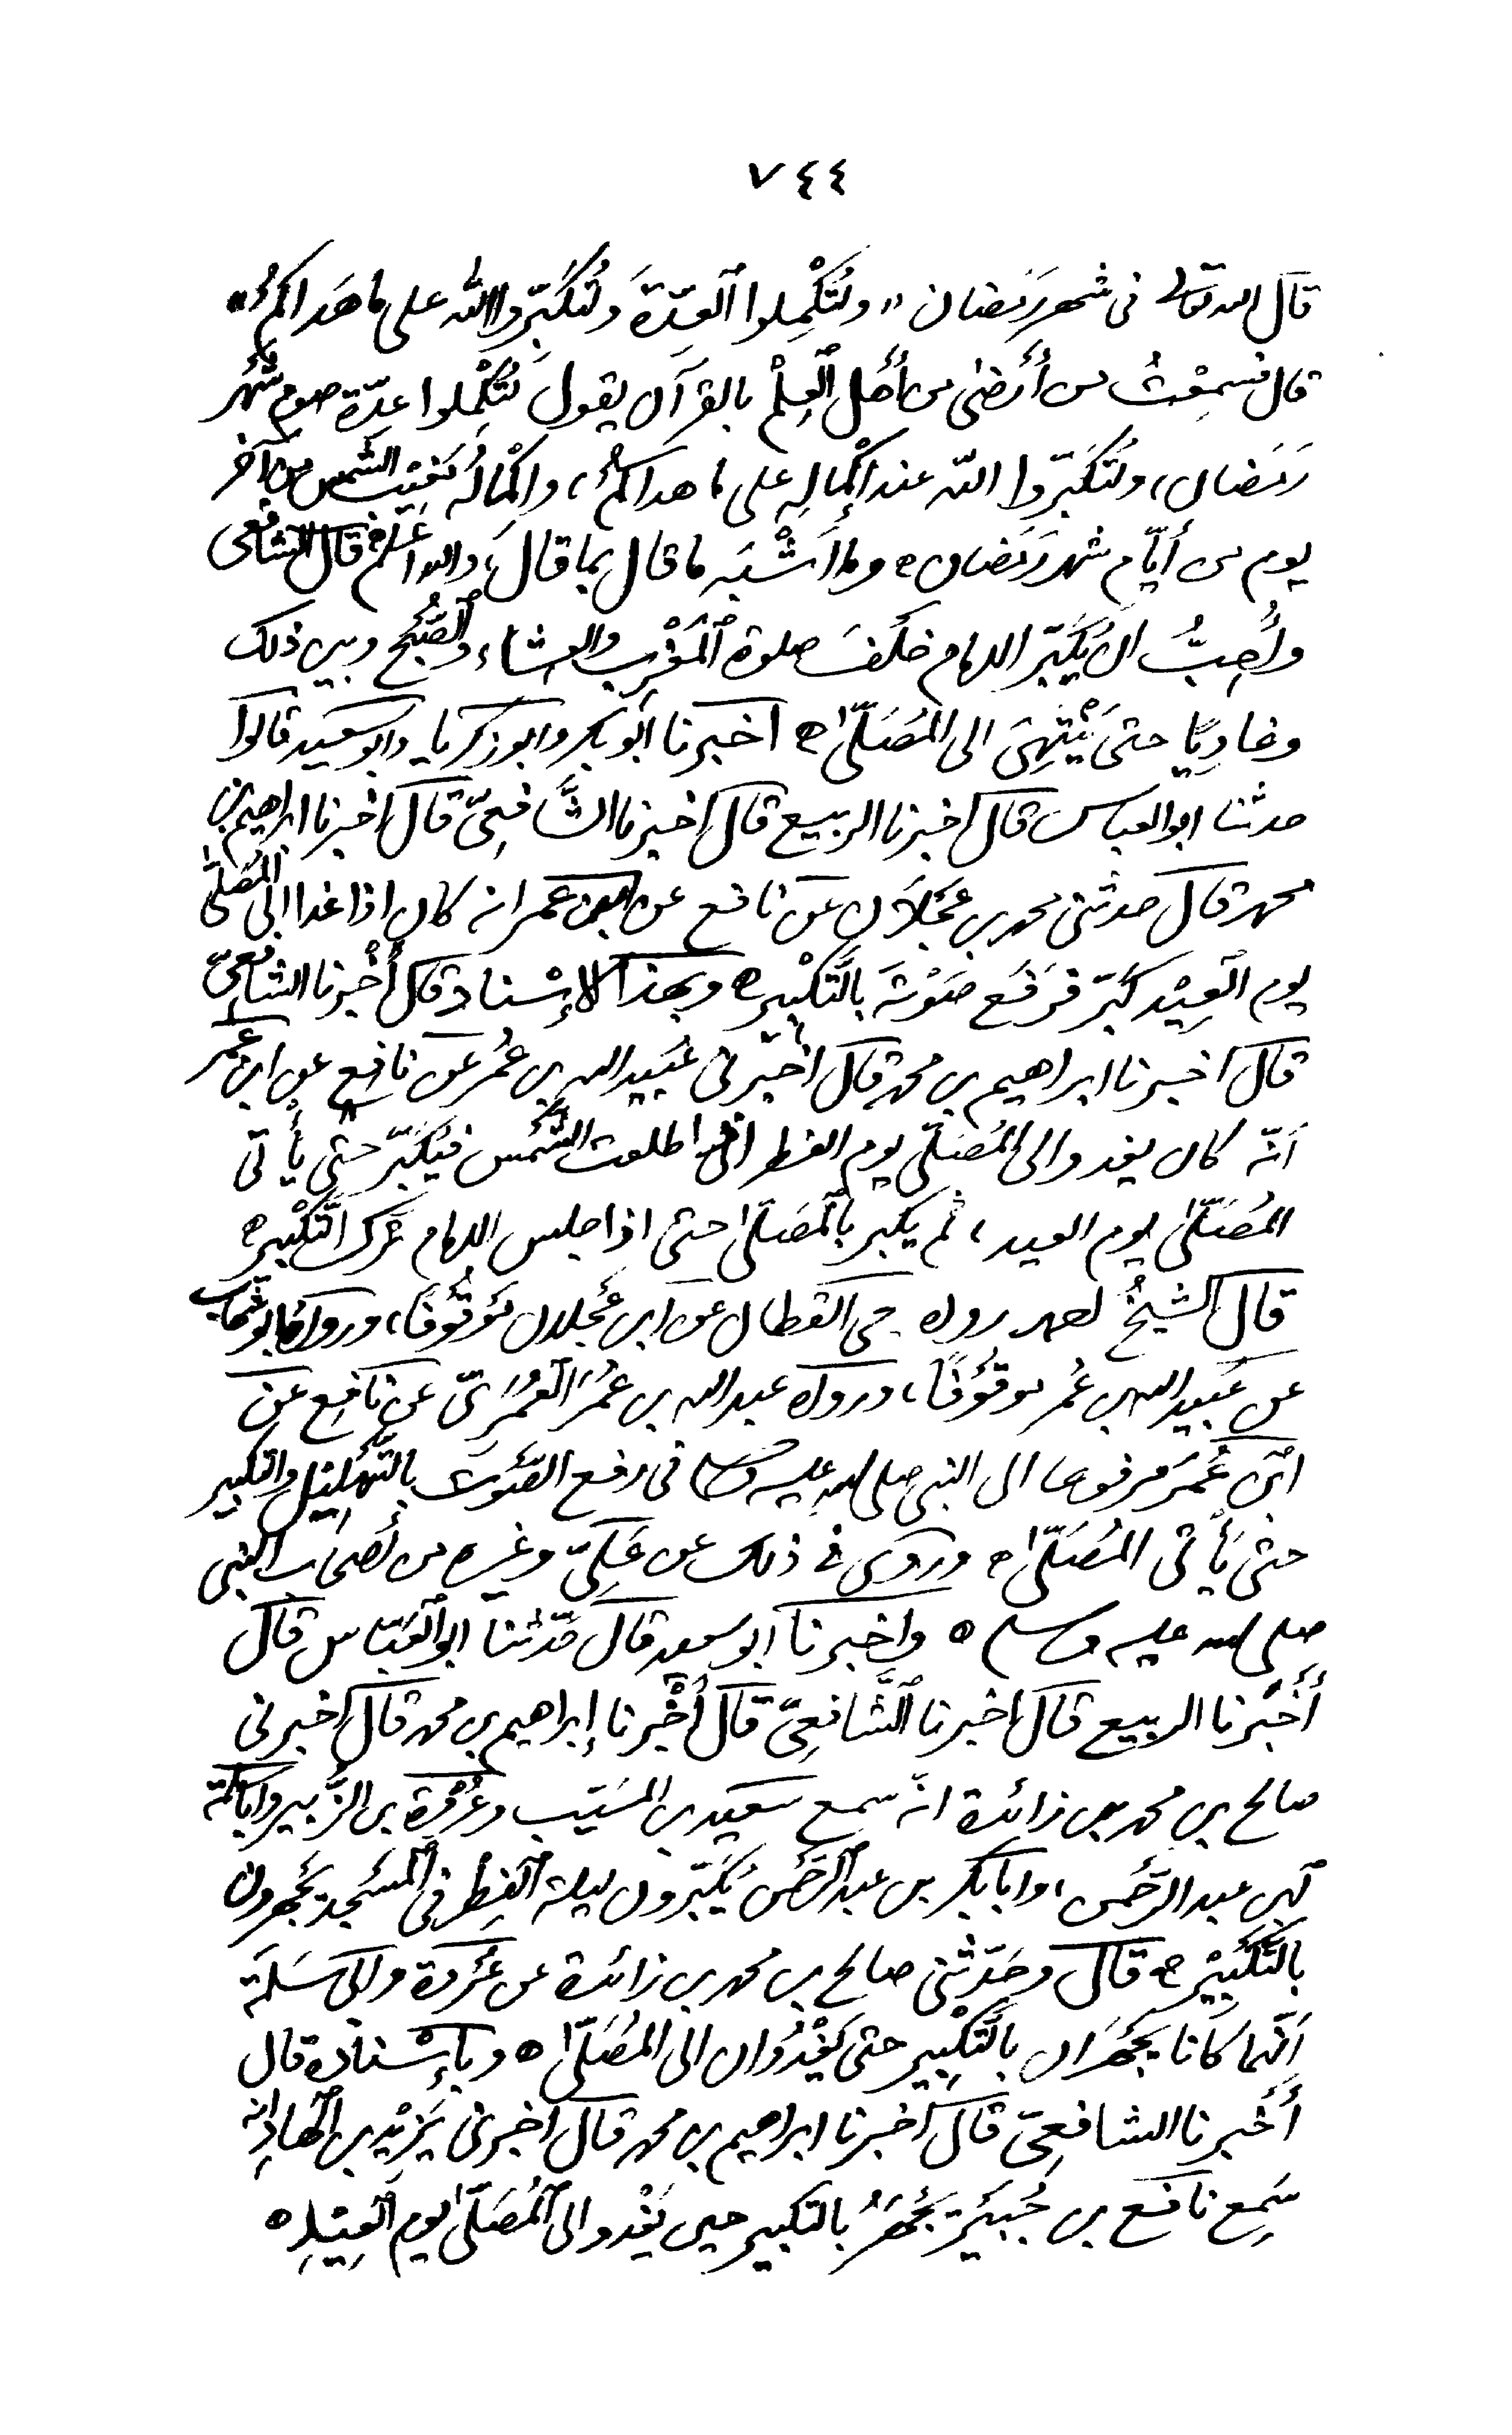 ٧٤٤
قال الله تعالى فى شهر رَمَضان «ولتُكْمِلوا ٱلعِدّةَ ولتُكَبّروا اللّه على ما هَداكمُ»
قال فسمِعْتُ من أَرْضىٰ من أَهْل ٱلعِلْم بالقرآن يقول لتُكْمِلوا عِدّة صوم شَهْر
رَمَضان، ولتُكَبّروا اللّه عند إِكْمالِهِ على ما هداكم، وإكْمالُه مَغِيْب الشّمس من آخر
يوم من أيّام شهر رَمَضان ٥ وما أَشْبَه ما قال بما قالَ، والله اعلم ٥ قال الشافعى
وأُحِبُّ ان يُكَبّر الامام خلْفَ صلوة ٱلمَغْرِب والعشاء وٱلصُّبْح وبين ذلك
وغادِيًا حتى يَنْتَهِىَ الى المُصَلّىٰ ٥ اخبرنا ابو بكر وابو زكريا وابو سعيد قالوا
حدثنا ابو العباس قال اخبرنا الربيع قال اخبرنا الشَّافِعىّ قال اخبرنا ابراهيم بن
محمد قال حدثنى محمد بن عَجْلَان عن نافع عن ابن عمر انه كان اذا غدا الى المُصَلّىٰ
يوم ٱلعِيْد كَبّر فرَفَع صَوْتَه بالتَّكْبير ٥ وبهذا الإِسْناد قال أَخْبرنا الشافعىّ
قال اخبرنا ابراهيم بن محمد قال اخبرنى عُبَيد الله بن عُمَر عن نافِع عن ابن عُمَر
أنّه كان يغدو الى المُصَلّى يوم الفطر اذا طلعت الشّمْس فيُكَبّر حتى يأتى
المُصَلّىٰ يوم العيد، ثم يكبر بالمُصَلّىٰ حتى اذا جلس الامام ترك التَّكْبير ٥
قال الشيخُ احمد رواه يحيى القطان عن ابن عَجْلان مَوْقُوفًا، ورواه ابو شهاب
عن عُبَيد الله بن عُمر موقُوفًا، ورواه عبد الله بن عُمَر ٱلعُمَرِىّ عن نافِع عن
ابن عُمَرَ مرفوعا الى النبى صلى الله عليه وسلم فى رفع الصَّوت بالتَّهْلِيل والتكبير
حتى يَأتى المُصَلّىٰ ٥ وروى فى ذلك عن عَلىّ وغيره من أصحاب النبى
صلى الله عليه وسلم ٥ واخبرنا ابو سعيد قال حَدّثنا ابو ٱلعَبّاس قال
أَخْبَرنا الربيع قال اخبرنا ٱلشَّافِعىّ قال أَخْبرنا إبراهيم بن محمد قال اخبرنى
صالح بن محمد بن زائدة انّه سمع سعيد بن المسَيّب وعُرْوَة بن الزُّبير وابا سلمة
ابن عبد الرَّحْمن، وابا بكر بن عبد ٱلرَّحْمن يُكَبّرون ليلة ٱلفِطْر فى ٱلمَسْجد يَجْهرون
بالتَّكْبيْر ٥ قال وحَدّثنى صالح بن محمد بن زائدة عن عُرْوة وابى سَلَمَة
أنّهُما كانا يَجْهَران بالتَّكْبِير حتى يَغْدُوَان الى المُصَلّىٰ ٥ وبإِسْناده قال
أَخْبرنا الشافعِىّ قال اخبرنا ابراهيم بن محمد قال اخبرنى يَزِيْد بن ٱلهادِ انه
سَمِع نافع بن جُبَيْر يَجْهَرُ بالتكبير حين يَغْدو الى ٱلمُصَلّىٰ يوم ٱلعِيْدِ ٥